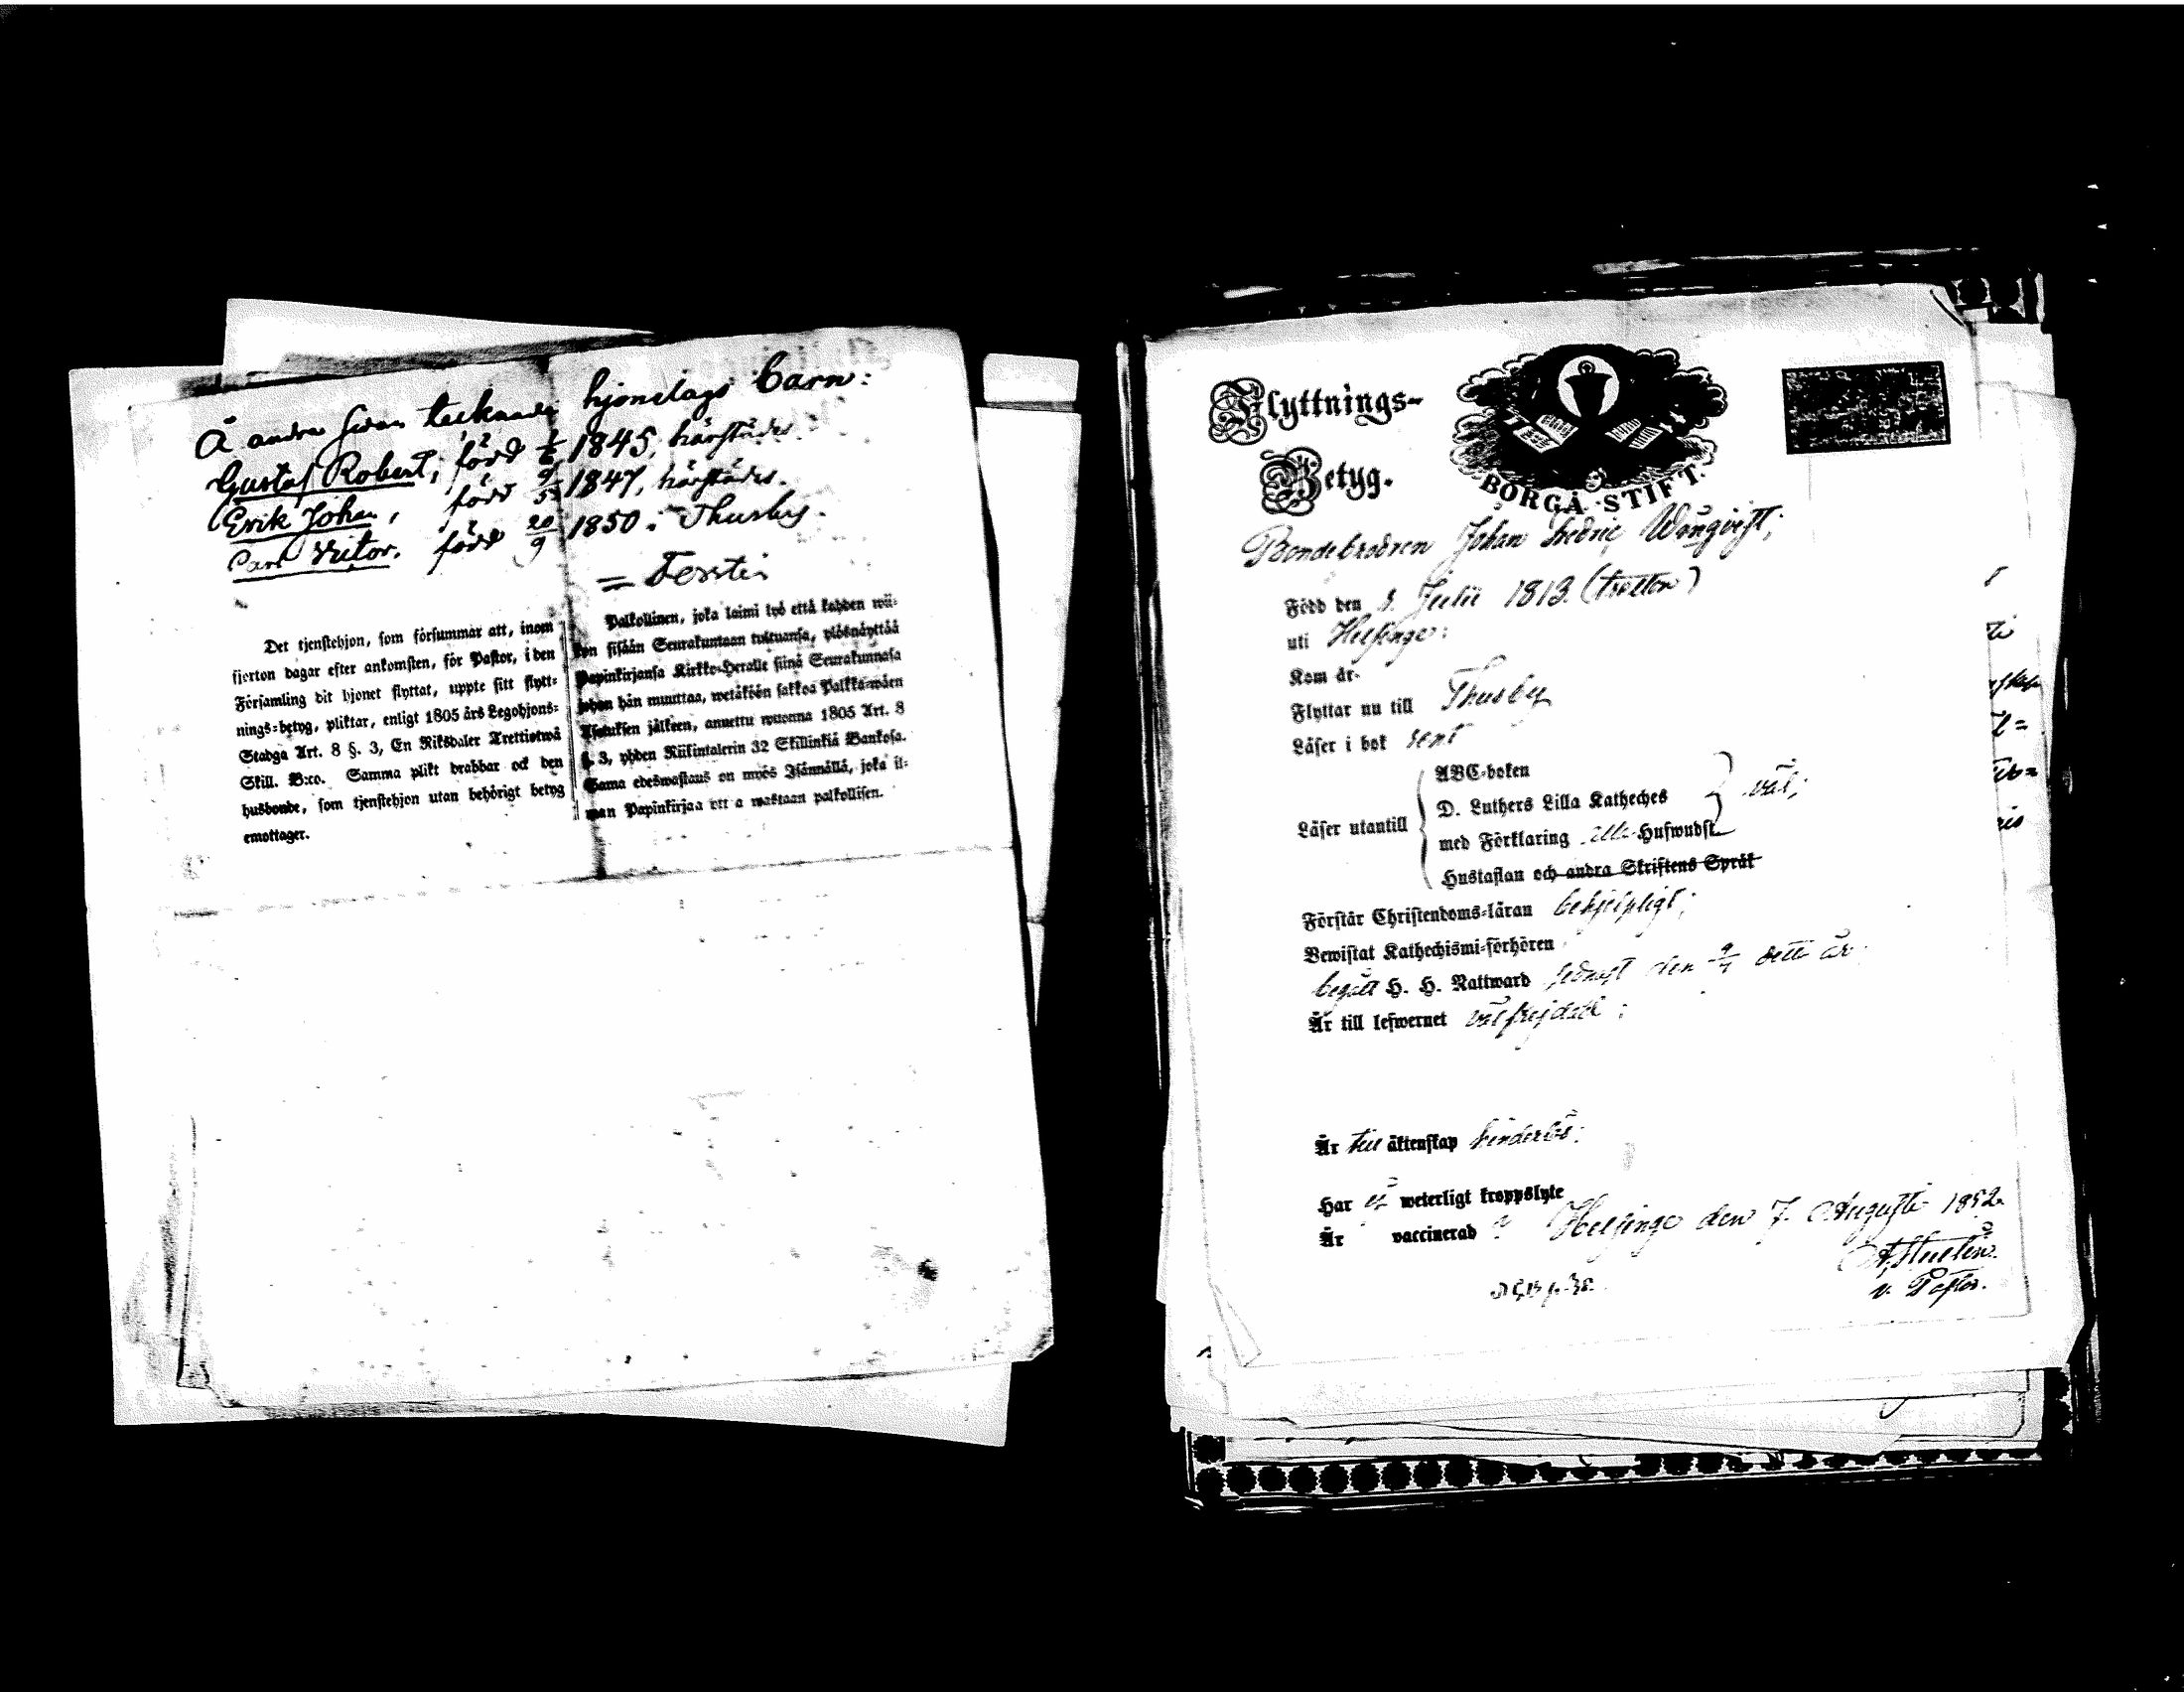 Å andra sidan tecknade hjonelags barn:
Gustaf Robert, född 1845, härstädes.
Erik Johan, född 9/5 1847, härstädes.
Carl Victor. född 20/9 1850 i Thusby.
Det tjenstehjon, som försummar att, inom
fjorton dagar efter ankomsten, för Pastor, i den
Församling dit hjonet flyttat, uppte sitt flytt-
nings-betyg, pliktar, enligt 1805 års Legohjons-
Stadga Art. 8 §. 3, En Riksdaler Trettiotwå
Skill. B:co. Samma plikt drabbar ock den
husbonde, som tjenstehjon utan behörigt betyg
emottager.
Palkollinen, joka laimi lyö että kahden wii-
kon sisään Seurakuntaan tultuansa, ylösnäyttää
Papinkirjansa Kirkko-Heralle siinä Seurakunnasa
johon hän muuttaa, wetäköön sakkoa Palkka-wäen
Asetuksen jälkeen, annettu wuonna 1805 Art. 8
§. 3, yhden Riikintalerin 32 Skillinkiä Bankosa.
Sama edeswastaus on myös Isännällä, joka il-
man Papinkirjaa ott a wastaan palkollisen.
Flyttnings-
Betyg.
BORGÅ STIFT.
Bondebrodren Johan Fredric Wångqvist;
Född den 8. Julii 1813. (tretton)
uti Helsinge:
Kom år
Flyttar nu till Thusby
Läser i bok rent
Läser utantill
ABC-boken
D. Luthers Lilla Katheches
med Förklaring alla Hufwudst.
Hustaflan och andra Skriftens Språk
väl;
Förstår Christendoms-läran behjelpligt;
Bewistat Kathechismi-förhören
begått H. H. Nattward sednast den detta år
Är till lefwernet välfrejdad;
Är till äktenskap hinderlös:
Har ej weterligt kroppslyte
Är vaccinerad
Helsinge den 7. Augusti 1852.
v. Pastor.